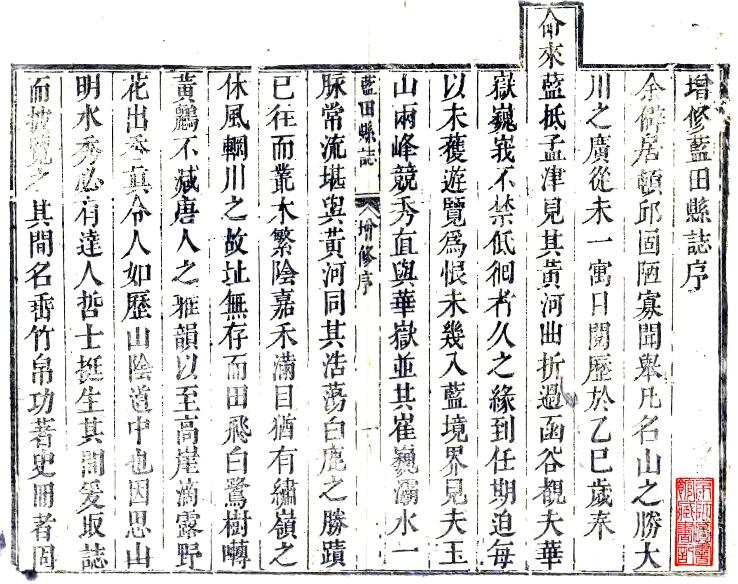 增修藍田縣誌序
余僻居頓邱固陋寡聞舉凡名山之勝大
川之廣從未一寓目閱歷於乙巳歲奉
命來藍抵孟津見其黃河曲折過函谷觀夫華
嶽巍峩不禁低徊者久之緣到任期迫每
以未獲遊覽爲恨未幾入藍境界見夫玉
山兩峰競秀直與華嶽並其崔巍灞水一
藍田縣誌 增修序 一
脉常流堪與黃河同其浩蕩白鹿之勝蹟
已往而叢木繁陰嘉禾滿目猶有繡嶺之
休風輞川之故址無存而田飛白鷺樹囀
黃鸝不減唐人之雅韻以至高崖滴露野
花出秀眞令人如歷山陰道中也因思山
明水秀必有達人哲士挺生其間爰取誌
而披覽之其間名垂竹帛功著史冊者固
京師圖書
館藏書記